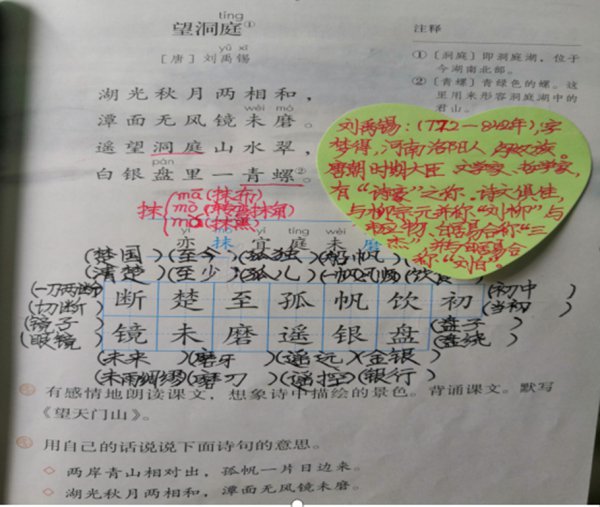 tíng
望洞庭①
yǔ xī
[唐] 刘禹锡
湖光秋月两相和，
wèi mó
潭面无风镜未磨。
遥望洞庭山水翠，
pán
白银盘里一青螺②。
注释
①〔洞庭〕即洞庭湖，位于
今湖南北部。
②〔青螺〕青绿色的螺。这
里用来形容洞庭湖中的
君山。
刘禹锡：(772—842年)，字
梦得，河南洛阳人，
唐朝时期大臣、文学家、哲学家，
有“诗豪”之称。诗文俱佳，
与柳宗元并称“刘柳”与
白居易合称“三
杰”，并与白居易合
称“刘白”。
抹
mā(抹布)
mò(抹墙抹角)
mǒ(抹黑)
yì mǒ yí tíng wèi
亦 抹 宜 庭 未 磨
(楚国)(至今)(孤独)(船帆)
(清楚)(至少)(孤儿)(一帆风顺)(饮食)
(一刀两断)
(切断)
断 楚 至 孤 帆 饮 初
(初中)
(当初)
(镜子)
(眼镜)
镜 未 磨 遥 银 盘
(盘子)
(盘绕)
(未来)(磨牙)(遥远)(金银)
(未雨绸缪)(磨刀)(遥控)(银行)
有感情地朗读课文，想象诗中描绘的景色。背诵课文。默写
《望天门山》。
用自己的话说说下面诗句的意思。
◇ 两岸青山相对出，孤帆一片日边来。
◇ 湖光秋月两相和，潭面无风镜未磨。